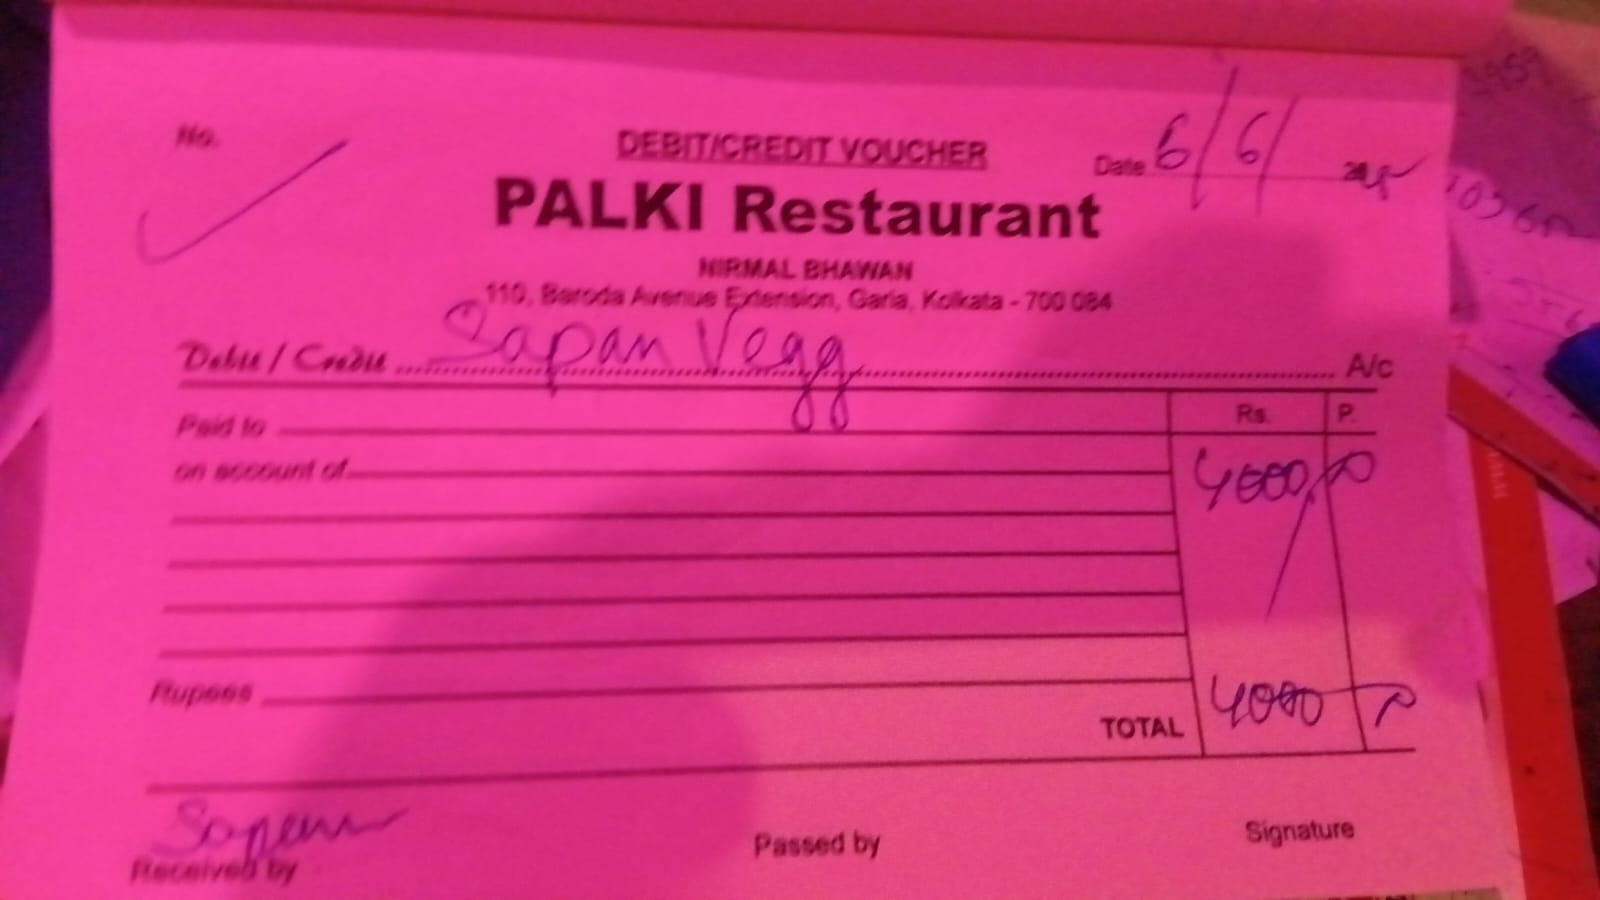 No.
DEBIT/CREDIT VOUCHER
Date 6/6/
PALKI Restaurant
NIRMAL BHAWAN
110, Baroda Avenue Extension, Garia, Kolkata - 700 084
Debit / Credit Sapan Vegg A/c
Rs. P.
Paid to
on account of 4000/
Rupees
TOTAL 4000
Sapan
Received by Passed by Signature